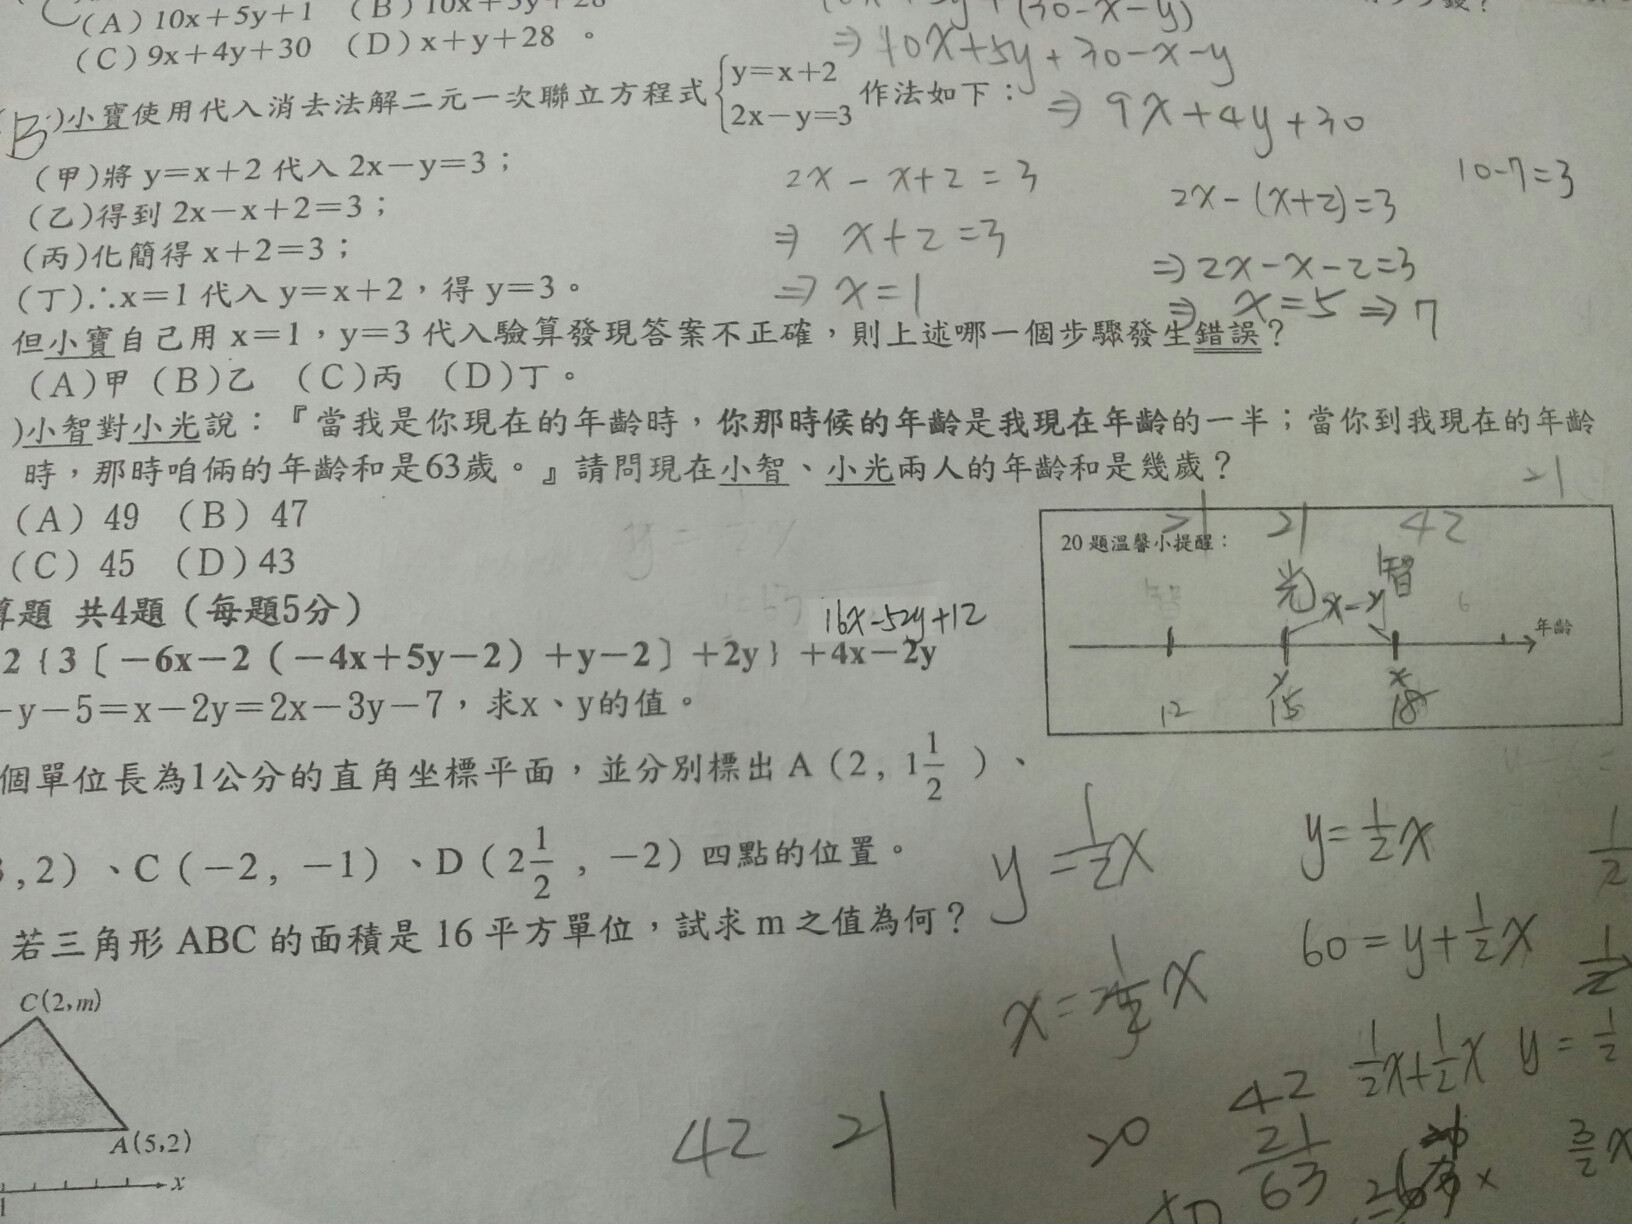 (A) 10x+5y+1 (B) 10x+5y+28
(30-x-y)
(C) 9x+4y+30 (D) x+y+28 。
⇒ 10x+5y+30-x-y
⇒ 9x+4y+30
B )小寶使用代入消去法解二元一次聯立方程式{y=x+2 2x-y=3 作法如下：
(甲)將 y=x+2 代入 2x-y=3；
(乙)得到 2x-x+2=3；
(丙)化簡得 x+2=3；
(丁)∴x=1 代入 y=x+2，得 y=3。
2x-x+2=3
⇒ x+2=3
⇒ x=1
2x-(x+2)=3
⇒ 2x-x-2=3
⇒ x=5 ⇒ 7
10-7=3
但小寶自己用 x=1，y=3 代入驗算發現答案不正確，則上述哪一個步驟發生錯誤？
(A)甲 (B)乙 (C)丙 (D)丁。
)小智對小光說：『當我是你現在的年齡時，你那時候的年齡是我現在年齡的一半；當你到我現在的年齡
時，那時咱倆的年齡和是63歲。』請問現在小智、小光兩人的年齡和是幾歲？
(A) 49 (B) 47
(C) 45 (D) 43
21
20 題溫馨小提醒：
21 21 42
光 x-y 智
年齡
y x
12 15 18
算題 共4題（每題5分）
16x-52y+12
2{3〔-6x-2（-4x+5y-2）+y-2〕+2y}+4x-2y
-y-5=x-2y=2x-3y-7，求x、y的值。
個單位長為1公分的直角坐標平面，並分別標出 A（2, 1 1/2 ）、
,2）、C（-2, -1）、D（2 1/2 , -2）四點的位置。
若三角形 ABC 的面積是 16 平方單位，試求 m 之值為何？
C(2,m)
A(5,2)
x
1
y=1/2x
y=1/2x
1/2
60=y+1/2x
1/2
1/2x+1/2x
y=1/2
42 21
20
42
21
63
3/2x